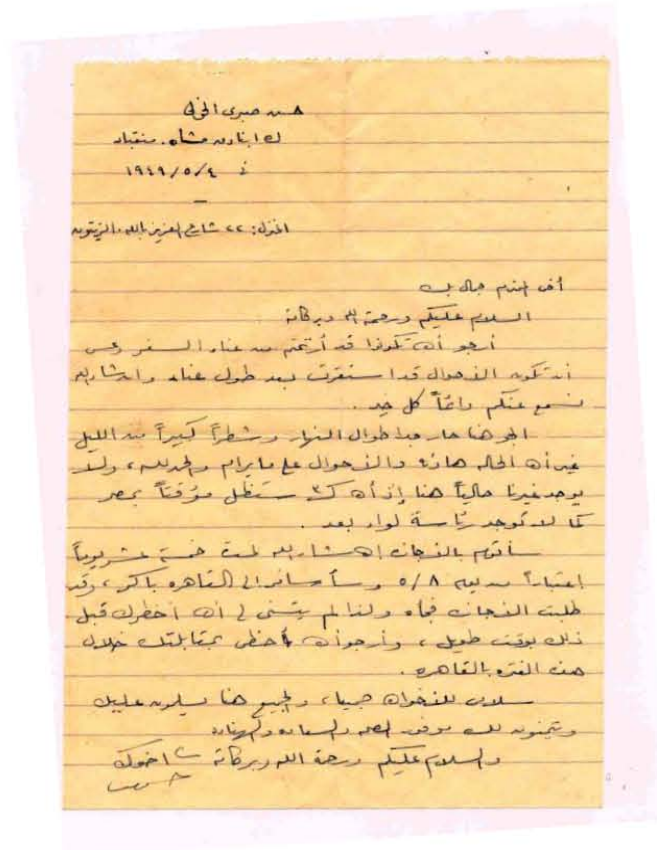 حسن صبرى الخولى
ك ١ بنادق مشاه. منقباد
فى ٤/٥/١٩٤٩
المنزل: ٢٢ شارع العزيز بالله. الزيتون
أخى المحترم جمال بك
السلام عليكم ورحمة الله وبركاته
أرجو أن تكونوا قد أرتحتم من عناء السفر وعسى
أن تكون الأحوال قد استقرت بعد طول عناء وان شاء الله
نسمع عنكم دائماً كل خير.
الجو هنا حار جدا طوال النهار وشطراً كبيراً من الليل
غير أن الحاله هادئه والأحوال على مايرام والحمد لله، ولا
يوجد غيرنا حالياً هنا إذ أن ك٢ ستظل مؤقتاً بمصر
كما لا توجد رئاسة لواء بعد.
سأقوم بالأجازه إن شاء الله لمدة خمسة عشر يوماً
إعتباراً من يوم ٥/٨ وسأسافر الى القاهره باكر، وقد
طلبت الأجازه فجأه ولذا لم يتسنى لى أن اخطرك قبل
ذلك بوقت طويل، وأرجو أن أحظى بمقابلتك خلال
هذه الفتره بالقاهره.
سلامى للأخوان جميعا، والجميع هنا يسلمون عليك
ويتمنون لك موفور الصحه والسعاده والهناء
والسلام عليكم ورحمة الله وبركاته اخوك
حسن